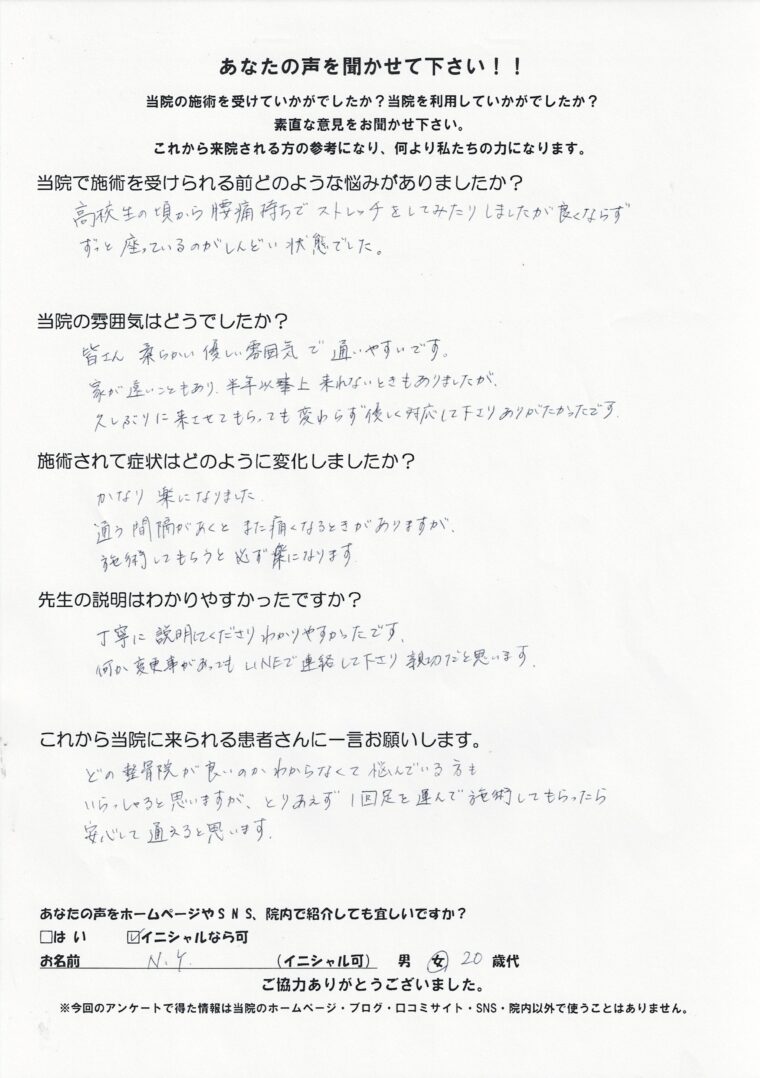 あなたの声を聞かせて下さい！！
当院の施術を受けていかがでしたか？当院を利用していかがでしたか？
素直な意見をお聞かせ下さい。
これから来院される方の参考になり、何より私たちの力になります。
当院で施術を受けられる前どのような悩みがありましたか？
高校生の頃から腰痛持ちでストレッチをしてみたりしましたが良くならず
ずっと座っているのがしんどい状態でした。
当院の雰囲気はどうでしたか？
皆さん柔らかい優しい雰囲気で通いやすいです。
家が遠いこともあり、半年以上来れないときもありましたが、
久しぶりに来させてもらっても変わらず優しく対応して下さりありがたかったです.
施術されて症状はどのように変化しましたか？
かなり楽になりました.
通う間隔があくとまた痛くなるときがありますが、
施術してもらうと必ず楽になります.
先生の説明はわかりやすかったですか？
丁寧に説明してくださりわかりやすかったです.
何か変更事があってもLINEで連絡して下さり親切だと思います.
これから当院に来られる患者さんに一言お願いします。
どの整骨院が良いのかわからなくて悩んでいる方も
いらっしゃると思いますが、とりあえず1回足を運んで施術してもらったら
安心して通えると思います.
あなたの声をホームページやSNS、院内で紹介しても宜しいですか？
□はい ☑イニシャルなら可
お名前 N.Y. （イニシャル可） 男 女 20 歳代
ご協力ありがとうございました。
※今回のアンケートで得た情報は当院のホームページ・ブログ・口コミサイト・SNS・院内以外で使うことはありません。